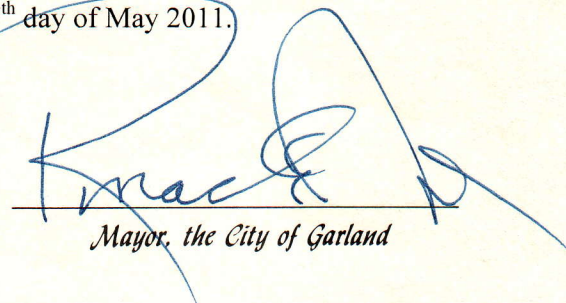 th day of May 2011.
Mayor, the City of Garland